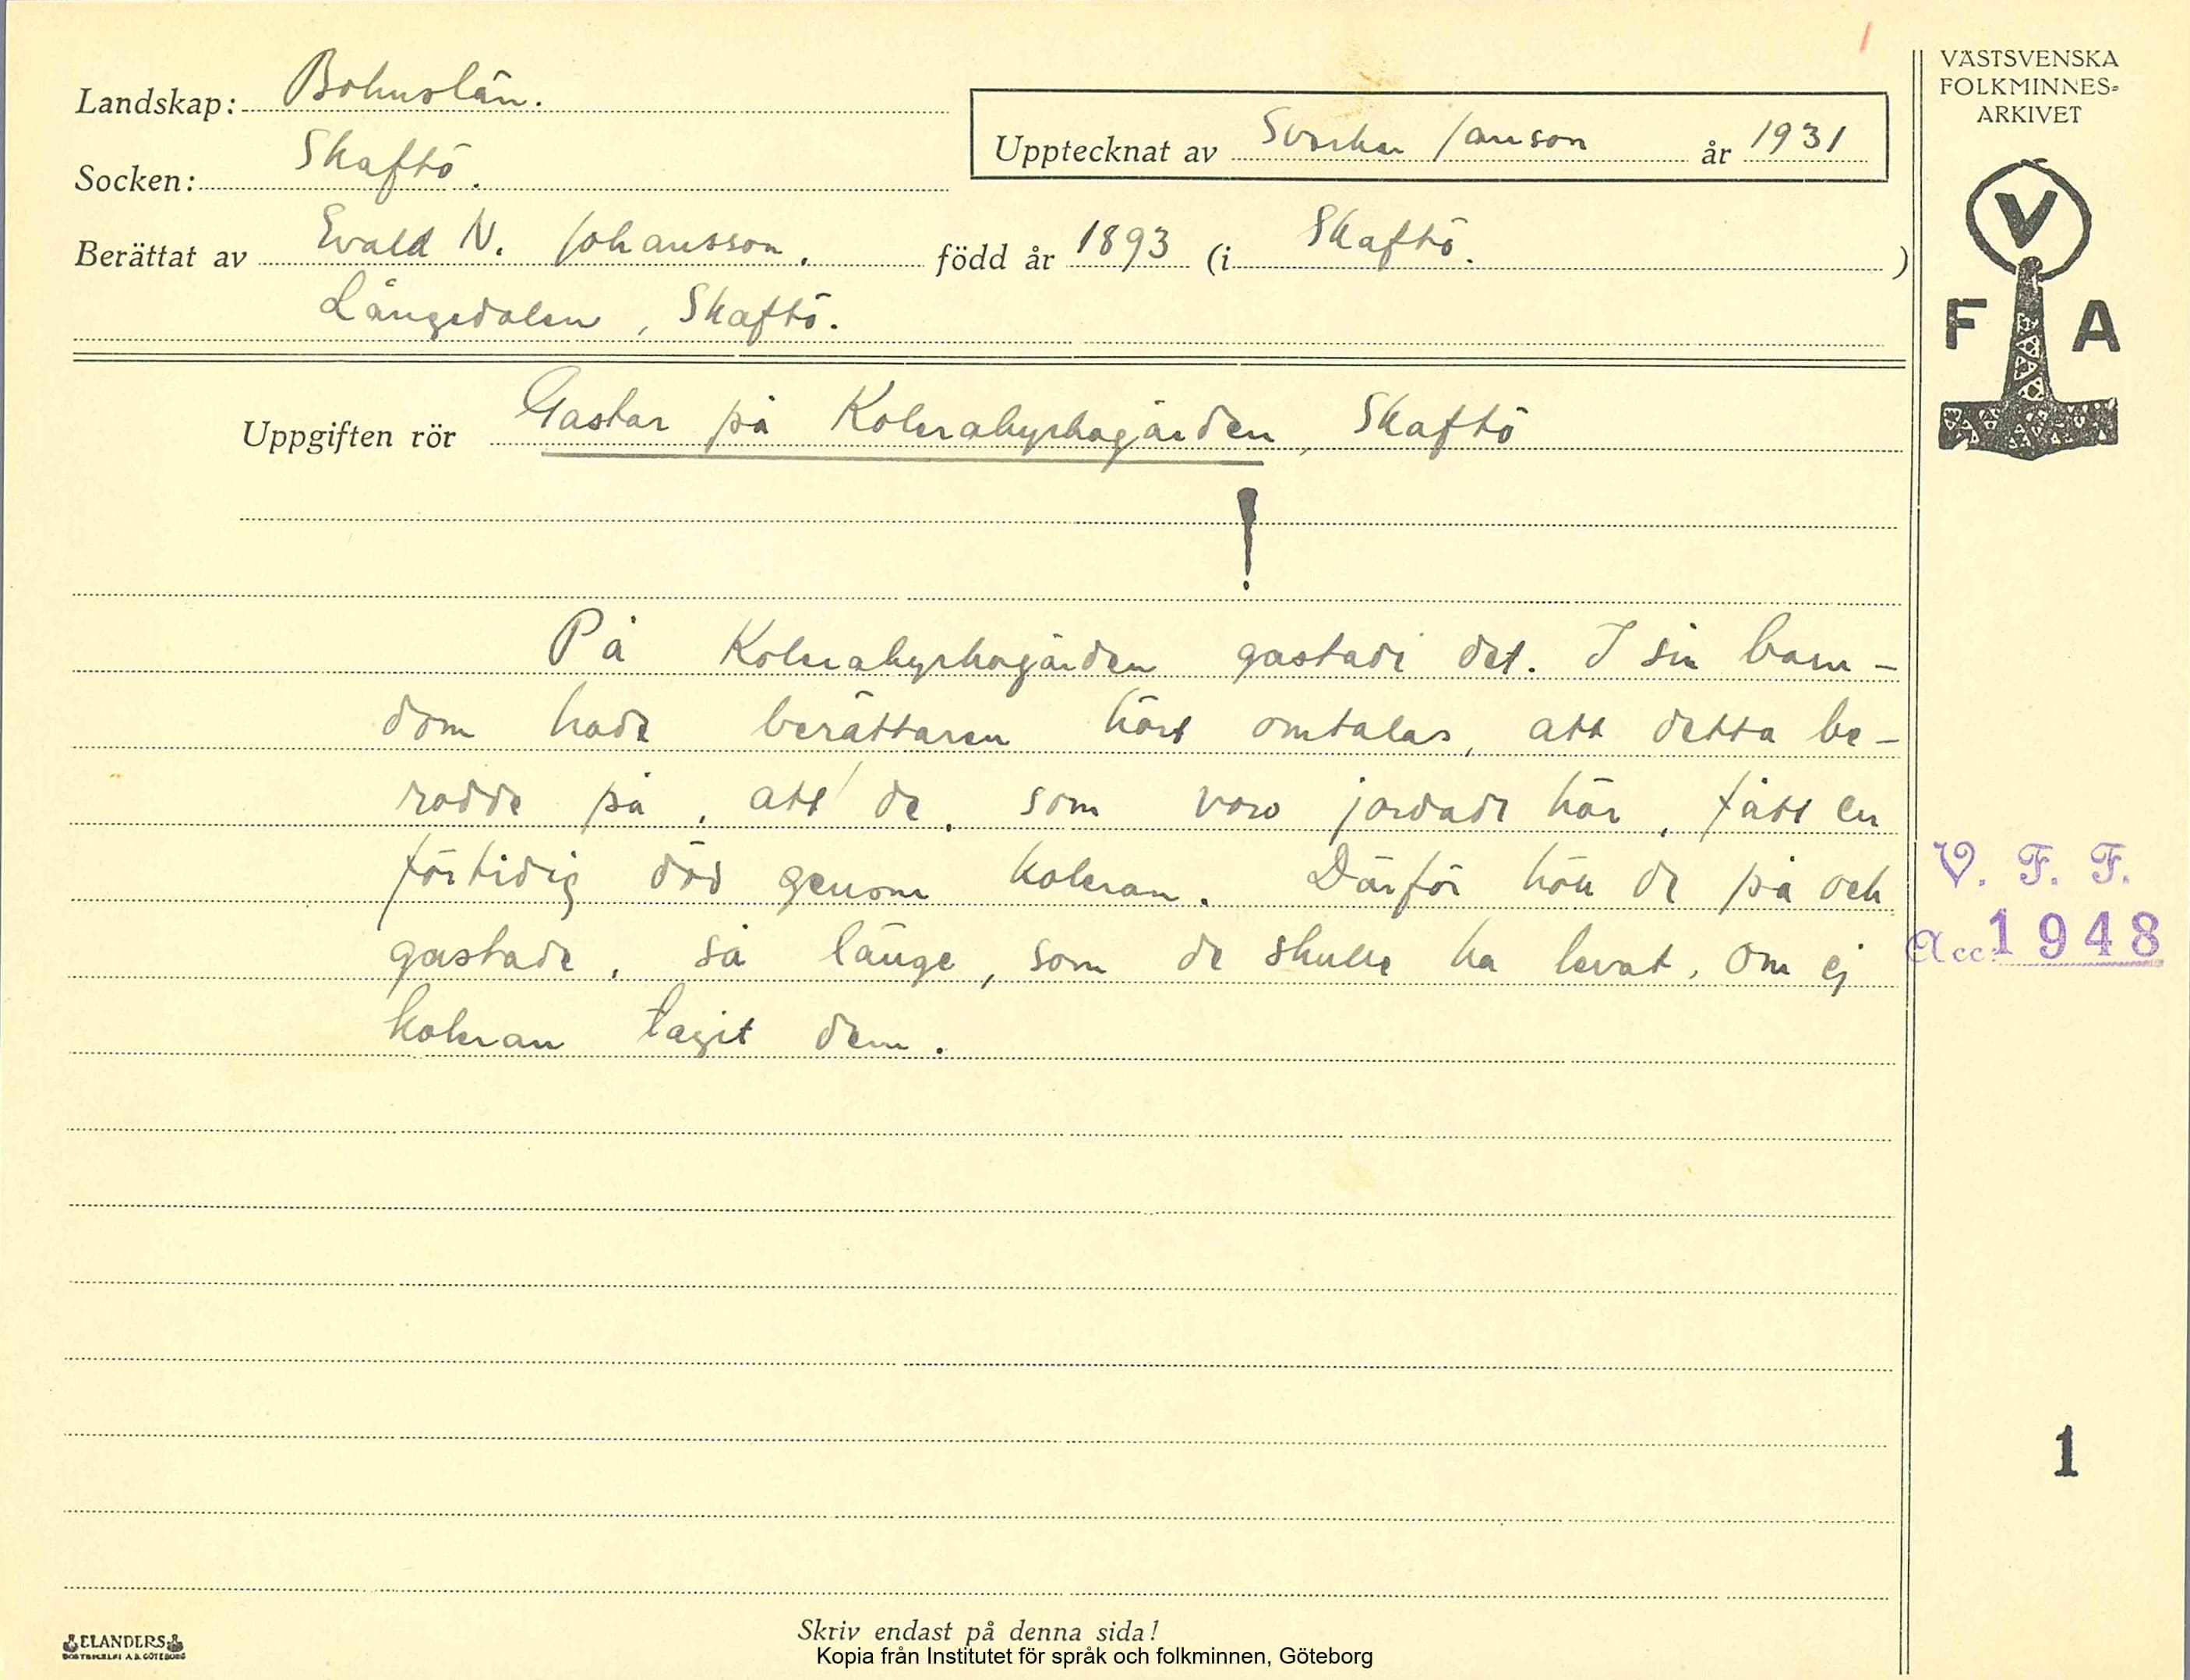 VÄSTSVENSKA
FOLKMINNES-
ARKIVET
Landskap: Bohuslän.
Upptecknat av Sverker Janson år 1931
Socken: Skaftö.
Berättat av Evald N. Johansson. född år 1893 (i Skaftö. )
Långedalen, Skaftö.
V
F A
Uppgiften rör Gastar på Kolerakyrkogården, Skaftö
!
På Kolerakyrkogården gastade det. I sin barn-
dom hade berättaren hört omtalas, att detta be-
rodde på, att de, som voro jordade här, fått en
förtidig död genom koleran. Därför höll de på och
gastade, så länge, som de skulle ha levat, om ej
koleran tagit dem.
V. F. F.
Acc. 1948
1
ELANDERS
BOKTRYCKERI A.B. GÖTEBORG
Skriv endast på denna sida!
Kopia från Institutet för språk och folkminnen, Göteborg